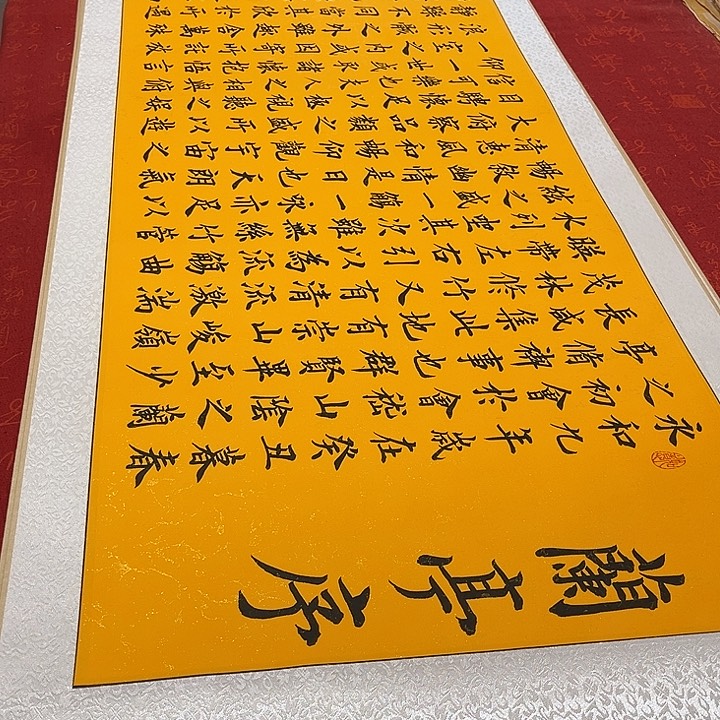 蘭亭序
永和九年歲在癸丑暮春
之初會於會稽山陰之蘭
亭脩禊事也群賢畢至少
長咸集此地有崇山峻嶺
茂林脩竹又有清流激湍
映帶左右引以為流觴曲
水列坐其次雖無絲竹管
絃之盛一觴一詠亦足以
暢敘幽情是日也天朗氣
清惠風和暢仰觀宇宙之
大俯察品類之盛所以遊
目騁懷足以極視聽之娛
信可樂也夫人之相與俯
仰一世或取諸懷抱悟言
一室之內或因寄所託放
浪形骸之外雖趣舍萬殊
靜躁不同當其欣於所